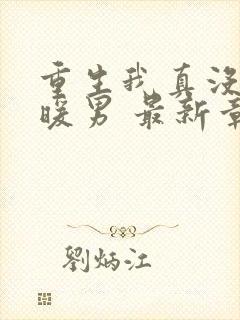 重生我真没
暖男 最新章
劉炳江